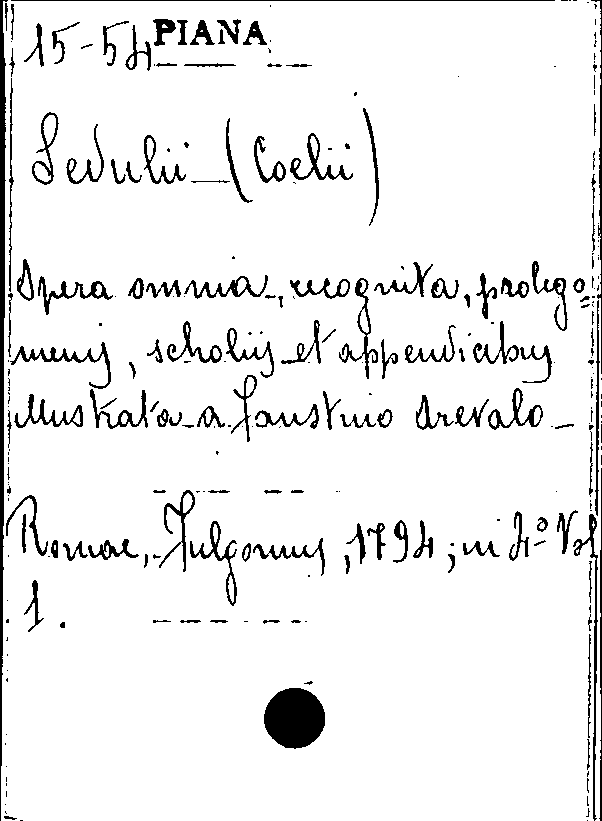 15-54 PIANA
Sedulii (Coelii)
Opera omnia, recognita, prolego=
menis, scholiis et appendicibus
illustrata a Faustino Arevalo
Romae, Fulgonius, 1794; in 4º Vol
1.